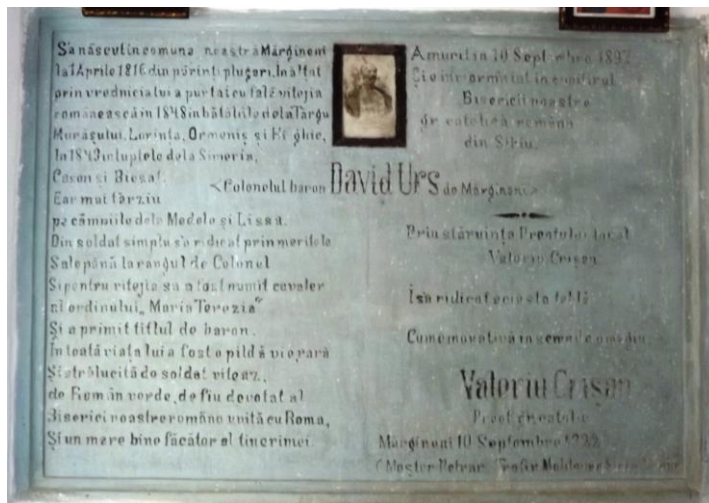 S'a născut in comuna noastră Mărgineni
la 1 Aprilie 1816 din părinți plugari. Înălțat
prin vrednicia lui a purtat cu fală vitejia
românească in 1848 in bătăliile dela Târgu
Murășului, Lorinta, Ormeniș și
In 1849 in luptele dela Simeria,
Cason si Biesat.
Ear mai târziu
pe câmpiile dela Medola și Lissa.
Din soldat simplu s'a ridicat prin meritele
Sale până la rangul de Colonel
Si pentru vitejia sa a fost numit cavaler
al ordinului „Maria Terezia"
Și a primit titlul de baron.
In toată viața lui a fost o pildă vie, rară
Și strălucită de soldat viteaz,
de Român verde, de fiu devotat al
Biserici noastre române unită cu Roma,
Și un mare bine făcător al tinerimei
A murit in 10 Septembrie 1897
Și e inmormintat in cimitirul
Bisericii noastre
gr. catolică română
din Sibiu.
<Colonelul baron David Urs de Mărgineni>
Prin stăruința Preotului local
Valeriu Crișan
I s'a ridicat aciasta tablă
Comemorativă in semn de omagiu
Valeriu Crișan
Preot gr. catolic
Mărgineni 10 Septembre
(Moșter Petrar Trofir Moldovan